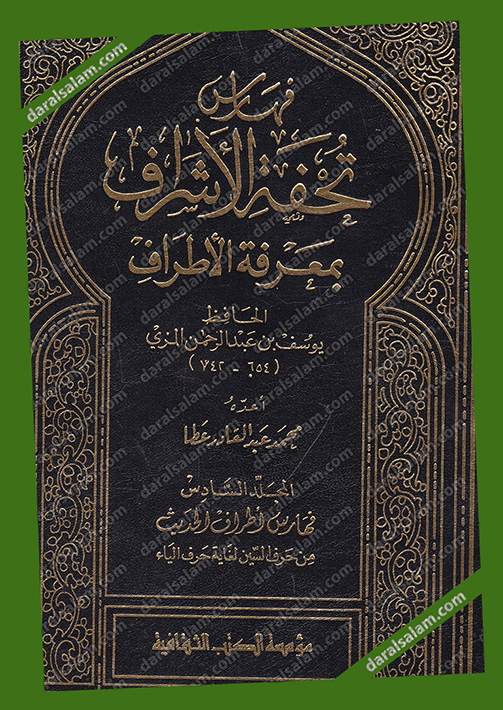 فهارس
تحفة الأشراف
بمعرفة الأطراف
الحافظ
يوسف بن عبد الرحمن المزي
(٦٥٤ - ٧٤٢)
أعده
محمد عبد القادر عطا
المجلد السادس
فهارس أطراف الحديث
من حرف السين لغاية حرف الياء
مؤسسة الكتب الثقافية
daralsalam.com
daralsalam.com